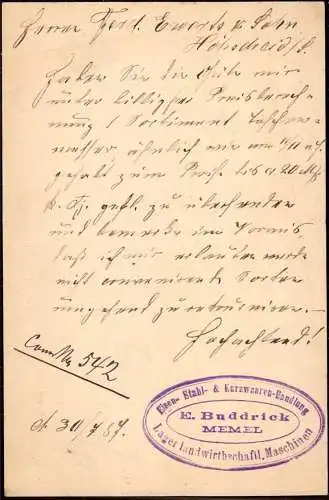 Herrn Ferd. Everts & Sohn
Höhscheid/S.
Haben Sie die Güte mir
unter billigster Preisberech-
nung 1 Sortiment Taschen-
messer ähnlich wie am
gehabt zum Preise bis a 20 Mk
p. gefl. zu übersenden
und bemerke im Voraus,
daß ich mir erlauben werde
nicht convenirende Sorten
umgehend zu retourniren.
Hochachtend!
542
d. 30/7 87.
Eisen- Stahl- & Kurzwaaren-Handlung
E. Buddrick
MEMEL
Lager landwirthschaftl. Maschinen